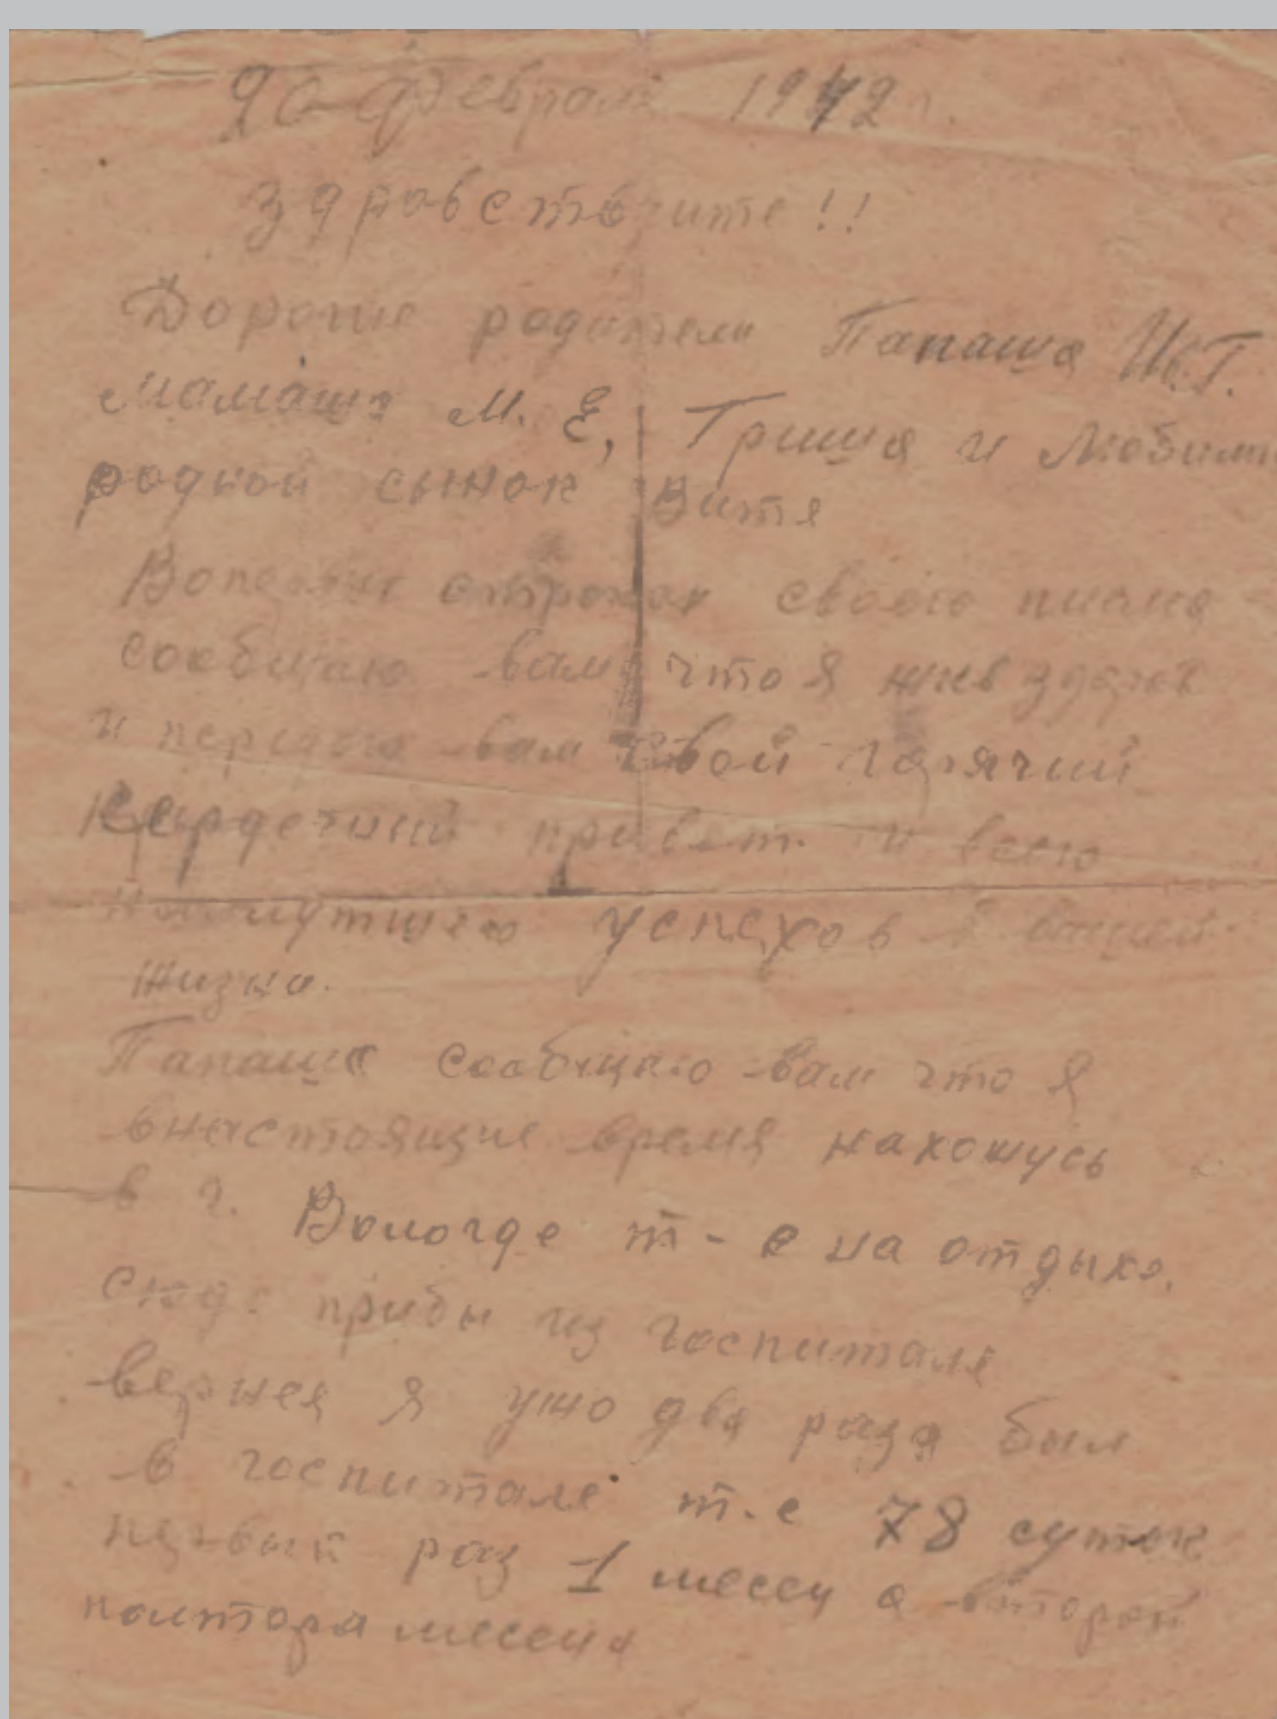 9го февраля 1942 г.
Здравствуите!!
Дорогие родители Папаша Ив. Г.
Мамаша М. Е, Гриша и Любимы
родной сынок Витя
Вопервых строках своего писма
сообщаю вам что я жив здоров
и передаю вам свой горячий
сердечний привет и всего
наилутшего успехов в вашей
жизни.
Папаша сообщаю вам что я
внастоящие время нахожусь
в г. Вологде т-е на отдыхе.
сюда прибы из госпиталя
вернея я ужо два раза был
в госпитале т.е 78 суток
первый раз 1 месец а второй
полтора месеца